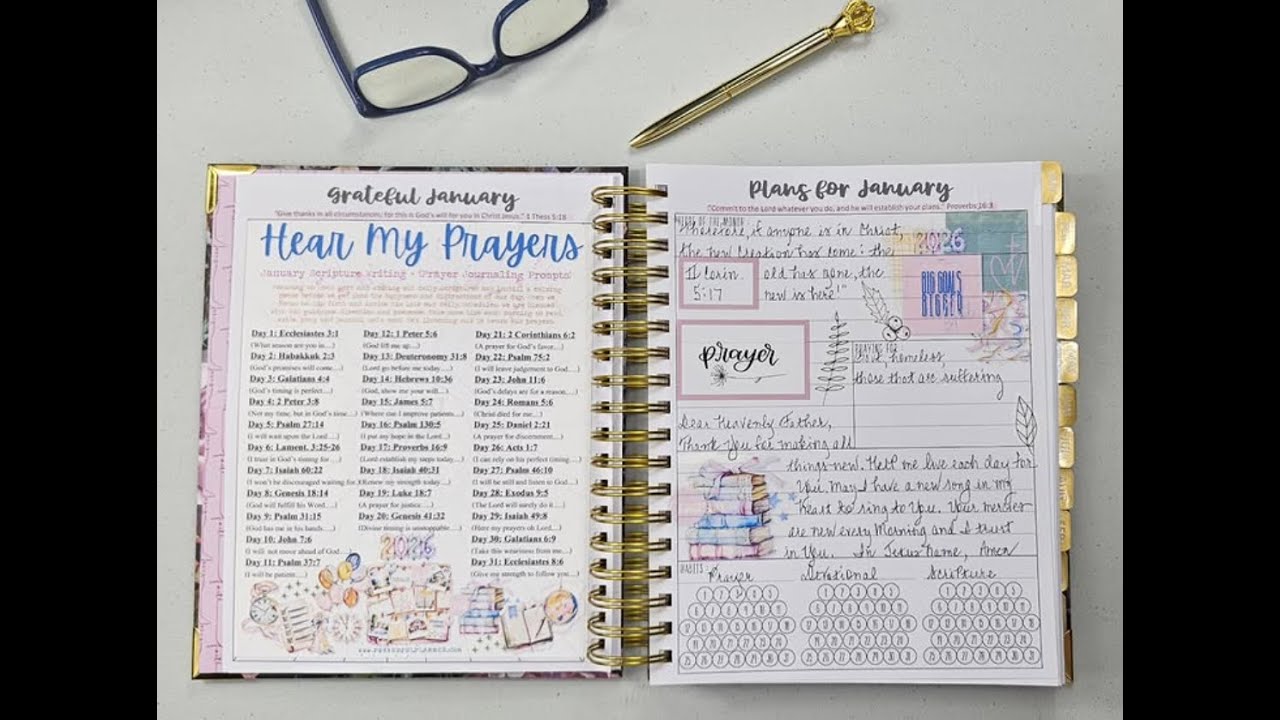 Grateful January
"Give thanks in all circumstances; for this is God's will for you in Christ Jesus." 1 Thess 5:18
Hear My Prayers
January Scripture Writing + (Prayer Journaling Prompts)
Day 1: Ecclesiastes 3:1
(What season are you in....)
Day 2: Habakkuk 2:3
(God's promises will come....)
Day 3: Galatians 4:4
(God's timing is perfect....)
Day 4: 2 Peter 3:8
(Not my time, but in God's time....)
Day 5: Psalm 27:14
(I will wait upon the Lord....)
Day 6: Lament. 3:25-26
(I trust in God's timing for....)
Day 7: Isaiah 60:22
(I won't be discouraged waiting for
Day 8: Genesis 18:14
(God will fulfill his Word....)
Day 9: Psalm 31:15
(God has me in his hands....)
Day 10: John 7:6
(I will not move ahead of God....
Day 11: Psalm 37:7
(I will be patient....)
Day 12: 1 Peter 5:6
(God lift me up....)
Day 13: Deuteronomy 31:8
(Lord go before me today....)
Day 14: Hebrews 10:36
(God, show me your will....)
Day 15: James 5:7
(Where can I improve patients....)
Day 16: Psalm 130:5
(I put my hope in the Lord....)
Day 17: Proverbs 16:9
(Lord establish my steps today....)
Day 18: Isaiah 40:31
(Renew my strength today....)
Day 19: Luke 18:7
(A prayer for justice....)
Day 20: Genesis 41:32
(Divine timing is unstoppable....)
Day 21: 2 Corinthians 6:2
(A prayer for God's favor....)
Day 22: Psalm 75:2
(I will leave judgement to God....)
Day 23: John 11:6
(God's delays are for a reason....)
Day 24: Romans 5:6
(Christ died for me....)
Day 25: Daniel 2:21
(A prayer for discernment....)
Day 26: Acts 1:7
(I can rely on his perfect timing....
Day 27: Psalm 46:10
(I will be still and listen to God....)
Day 28: Exodus 9:5
(The Lord will surely do it....)
Day 29: Isaiah 49:8
(Hear my prayers oh Lord....)
Day 30: Galatians 6:9
(Take this weariness from me....)
Day 31: Ecclesiastes 8:6
(Give me strength to follow you....)
2026
Plans for January
"Commit to the Lord whatever you do, and he will establish your plans." Proverbs 16:3
VERSE OF THE MONTH:
Therefore, if anyone is in Christ
the new Creation has come: the
II Corin. 5:17
old has gone, the
new is here!"
2026
BIG GOALS
BIGGER
prayer
PRAYING FOR
homeless,
those that are suffering
Dear Heavenly Father,
Thank You for making all
things new. Help me live each day for
You. May I have a new song in my
heart to sing to You. Your mercies
are new every Morning and I trust
in You. In Jesus Name, Amen
HABITS:
Prayer Devotional Scripture